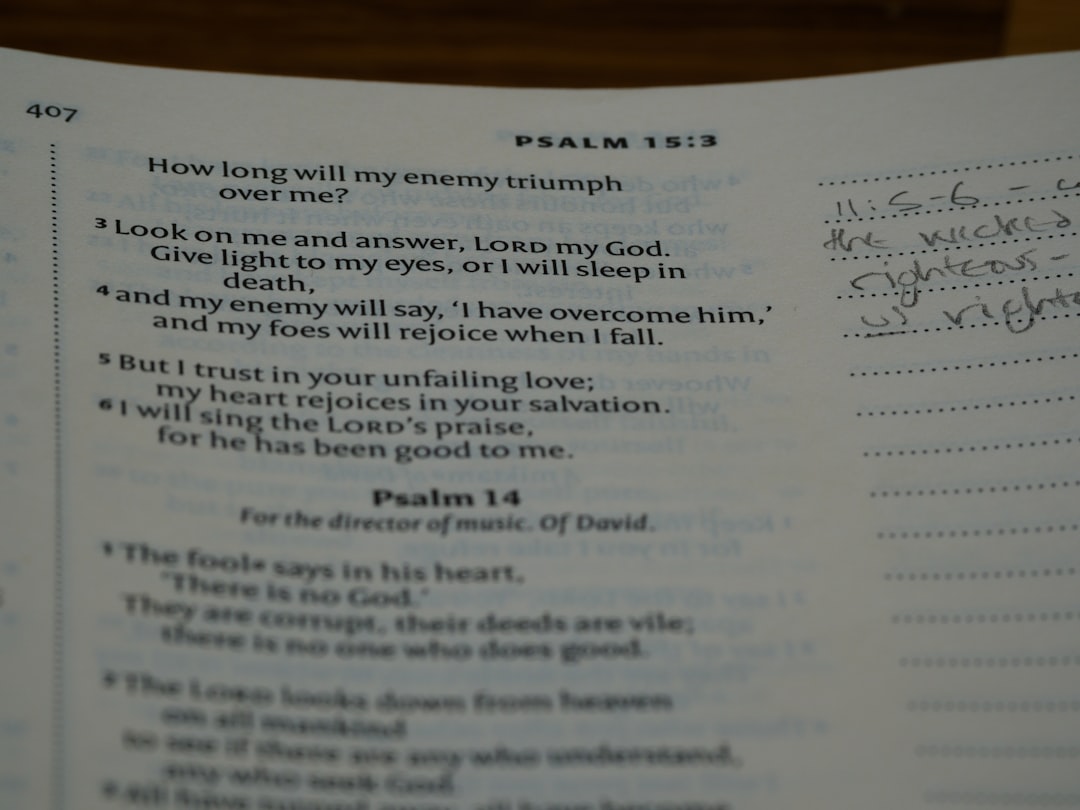 407
PSALM 15:3
How long will my enemy triumph
over me?
3 Look on me and answer, LORD my God.
Give light to my eyes, or I will sleep in
death,
4 and my enemy will say, ‘I have overcome him,’
and my foes will rejoice when I fall.
5 But I trust in your unfailing love;
my heart rejoices in your salvation.
6 I will sing the LORD’s praise,
for he has been good to me.
Psalm 14
For the director of music. Of David.
1 The fool a says in his heart,
‘There is no God.’
They are corrupt, their deeds are vile;
there is no one who does good.
2 The LORD looks down from heaven
on all mankind
to see if there are any who understand,
any who seek God.
3 All have turned away, all have become
11:5-6 -
the wicked
righteous -
us